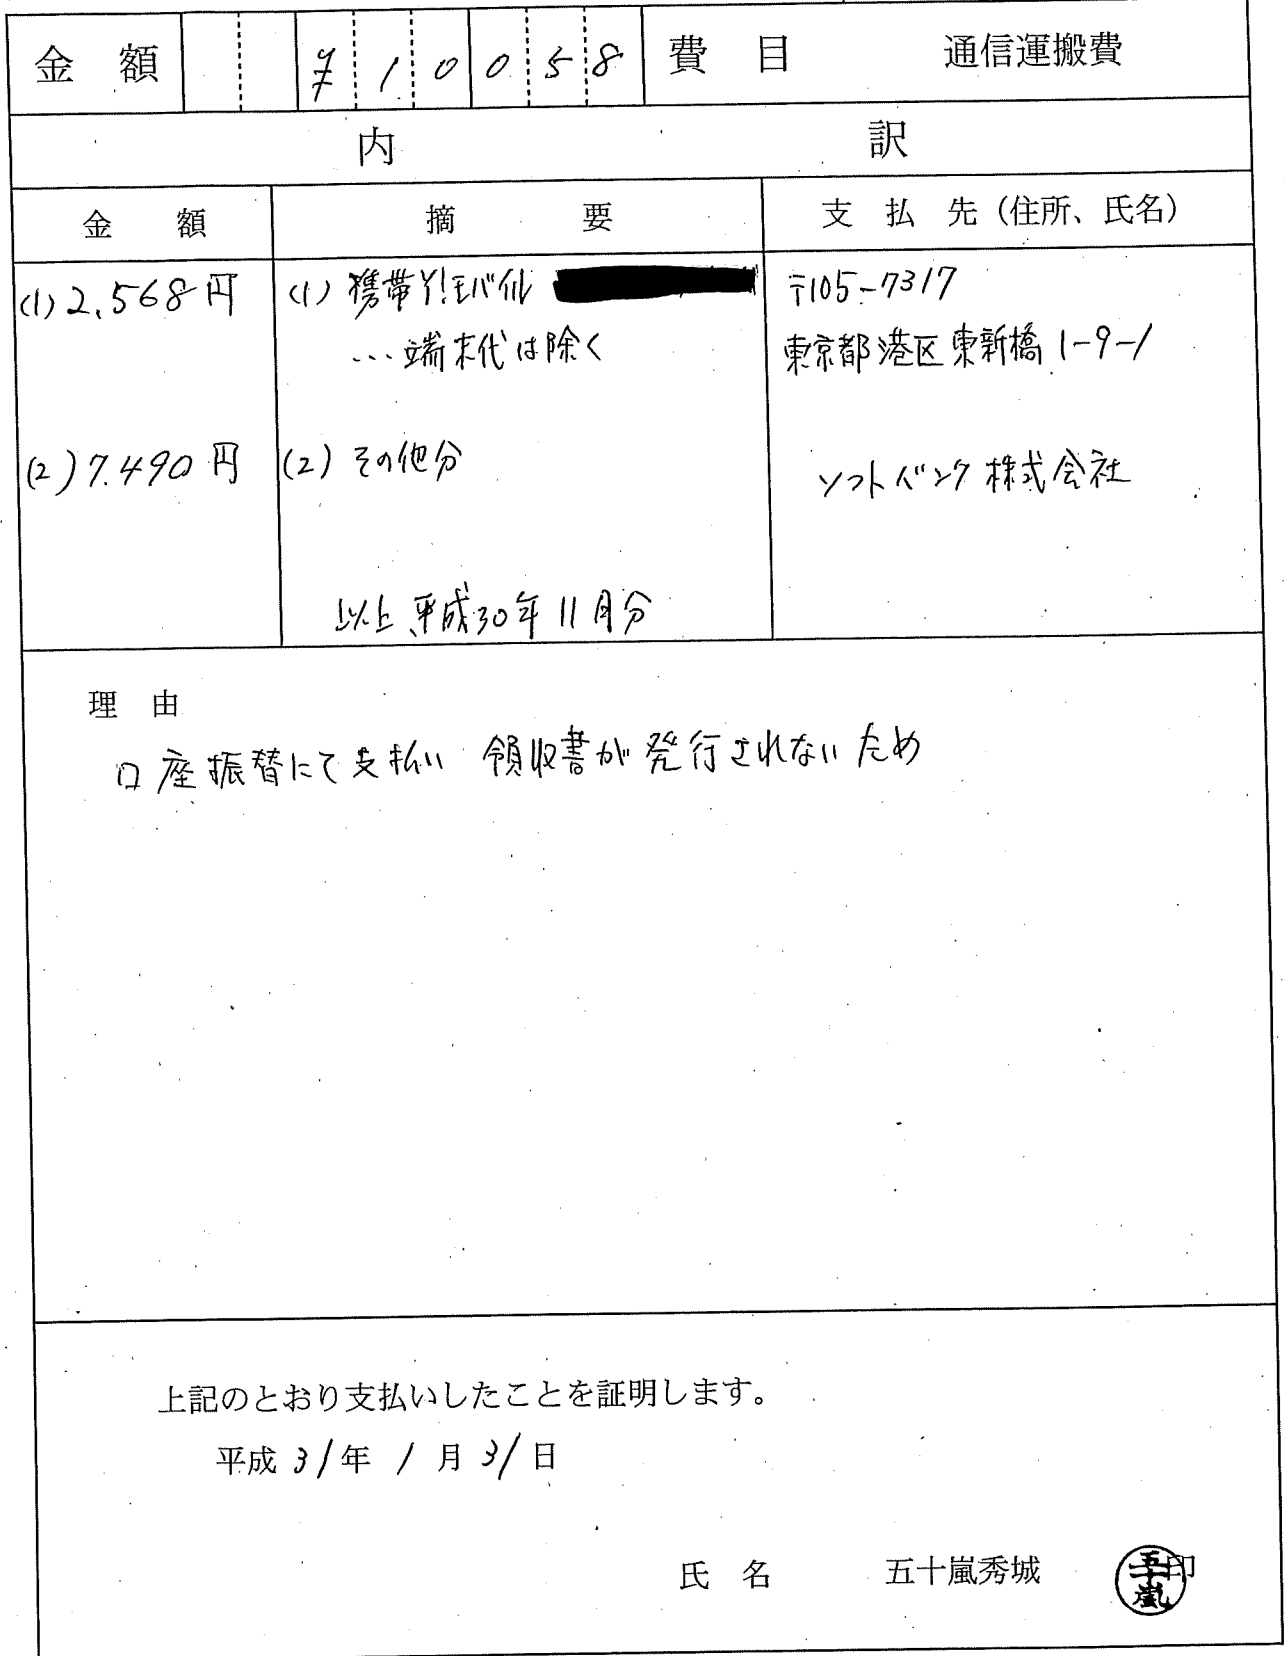 金額 ¥10058 費目 通信運搬費
内訳
金額 摘要 支払先（住所、氏名）
(1) 2,568円 (1) 携帯Y!モバイル 〒105-7317
…端末代は除く 東京都港区東新橋1-9-1
(2) 7,490円 (2) その他分 ソフトバンク株式会社
以上、平成30年11月分
理由
口座振替にて支払い 領収書が発行されないため
上記のとおり支払いしたことを証明します。
平成31年1月31日
氏名 五十嵐秀城 印
五十嵐